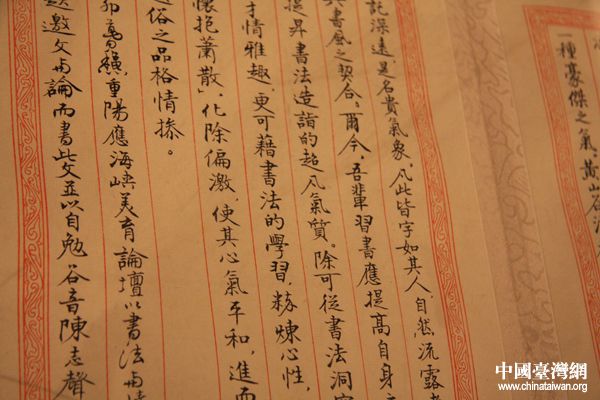 一種豪傑之氣；黃山谷
託深遠，是名貴氣象，凡此皆字如其人，自然流露
與書風之契合。爾今，吾輩習書應提高自身之
提昇書法造詣的超凡氣質。除可從書法洞
才情雅趣，更可藉書法的學習，粹煉心性，
懷抱蕭散」化除偏激，使其心氣平和，進而
俗之品格情操。
卯菊績，重陽應海峽美育論壇以書法與情
邀文與論而書此文並以自勉 谷音陳志聲
中國臺灣網
www.chinataiwan.org